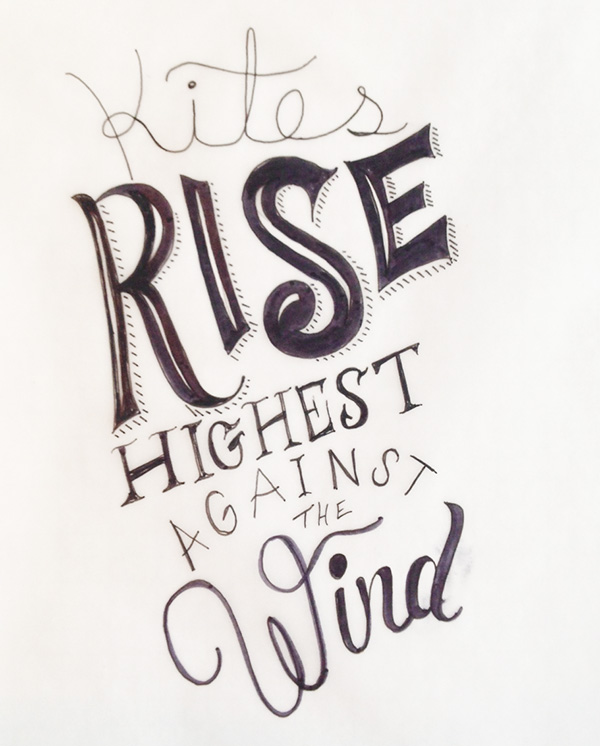 Kites
RISE
HIGHEST
AGAINST
THE
Wind